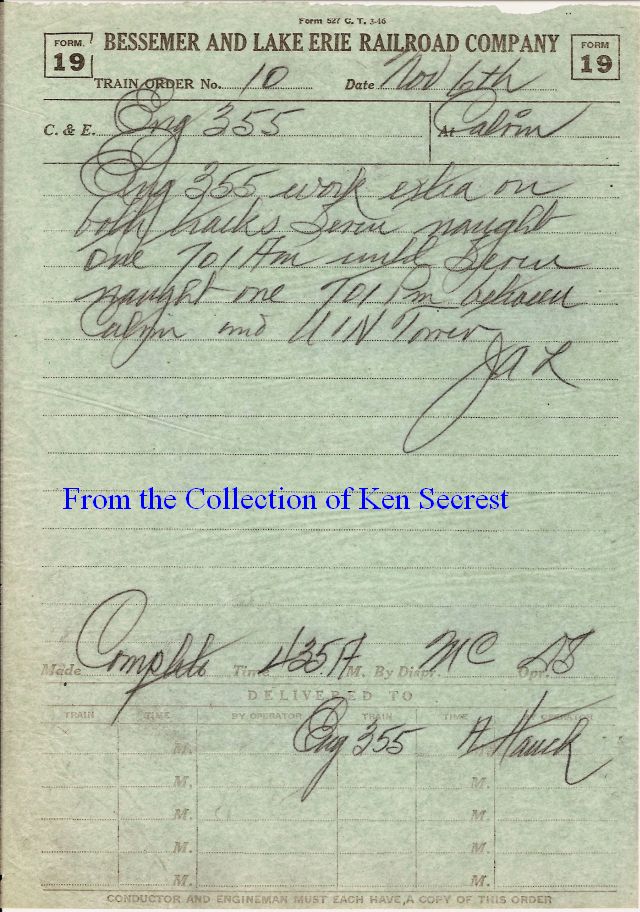 Form 527 C. T. 3-46
FORM 19
BESSEMER AND LAKE ERIE RAILROAD COMPANY
FORM 19
TRAIN ORDER No. 10 Date Nov 6th
C. & E. Eng 355 At Calvin
Eng 355 work extra on
both tracks Seven naught
one 701 Am until Seven
naught one 701 Pm between
Calvin and UN Tower
JAL
From the Collection of Ken Secrest
Made Complete Time 435 A M. By Dispr. MC Opr.
DELIVERED TO
TRAIN TIME BY OPERATOR TRAIN TIME OPERATOR
M. Eng 355 A Hauck
M. M.
M. M.
M. M.
M. M.
CONDUCTOR AND ENGINEMAN MUST EACH HAVE A COPY OF THIS ORDER